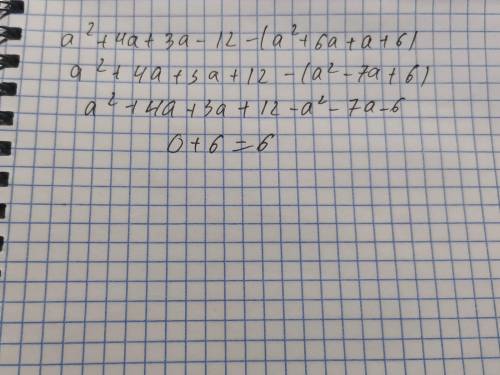 a² + 4a + 3a - 12 - (a² + 6a + a + 6)
a² + 4a + 3a + 12 - (a² - 7a + 6)
a² + 4a + 3a + 12 - a² - 7a - 6
0 + 6 = 6